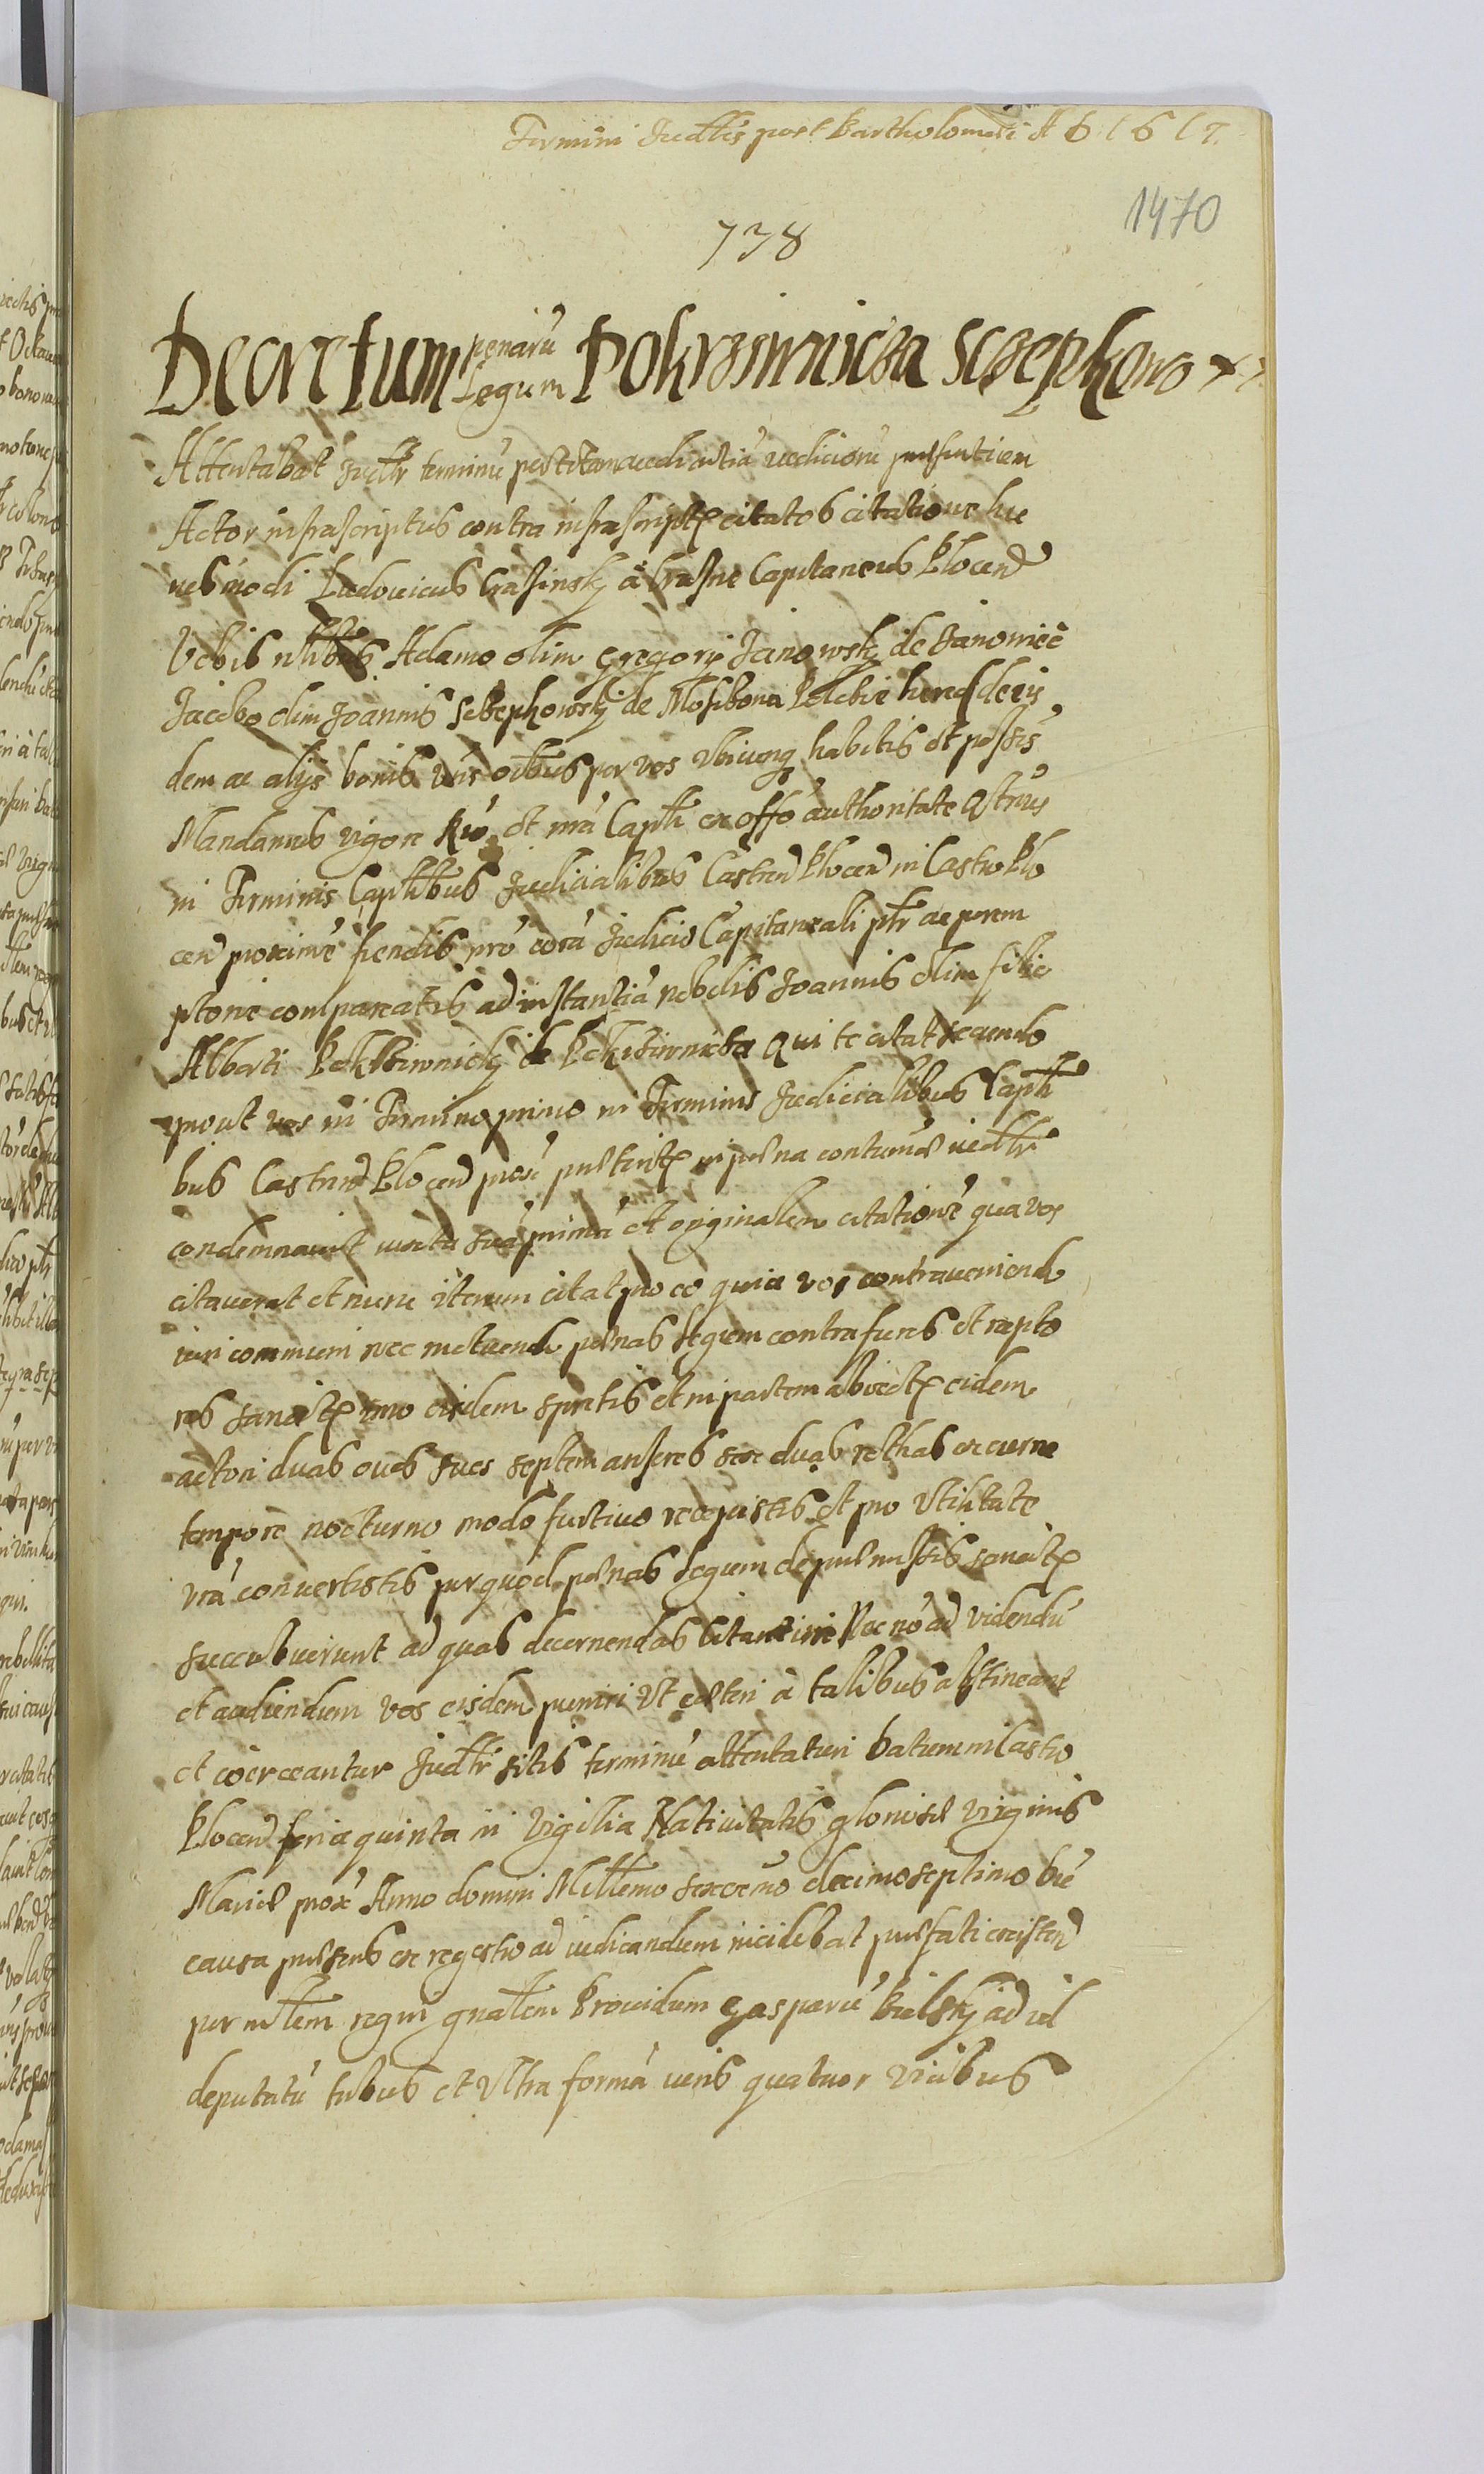 Termini Judtles post Bartholomei A D 1617.
1470
738
Decretum penarū Legum Pokrziwnicza Sczepkowo
Attentabat Judtr terminū post Jtam audientiā iudiciorū pulsuti em
Actor infrascriptus contra infrascriptos citatos citatione hu
iusmodi Ludouicus Crasinsky à Crasne Capitaneus Plocen
Vobis nlibus Adamo olim Gregorij Janowsky de Janowiec
Jacobo olim Joannis Sczepkowsky de Mosibona Plebie heredde eis
dem ac alijs bonis vris oibus per vos vbicunq habitis et possis
Mandamus vigore Rio et nrā Capli ex offo authoritate qtnus
in Terminis Caplibus Judicialibus Castren Plocen in Castro Plo
cen proxime fiendis nrō corā Judicio Capitaneali ptr ac perem
ptorie compareatis ad instantiā nobilis Joannis olim filio
Alberti Pokrziwnicky de Pokrziwnicza Qui te citat secundo
prout vos in Termino primo in Terminis Judicialibus Capli
bus Castren Plocen prox pulterit in poena contumac iudtr
condemnauit iuxta suā primā et originalem citationē qua vos
citauerat et nunc iterum citat pro eo quia vos contraueniendo
iuri communi nec metuendo poenas legum contra fures et rapto
res sancitas imo eisdem spretis et in partem abiectis eidem
actori duas oues sues septem anseres sex duas rethas ex curru
tempore nocturno modo furtiuo recepistis et pro Vtilitate
vrā conuertistis per quod poenas legum de praemissis sancitas
succubuerunt ad quas decernendas citamini Nec nō ad videndū
et audiendum vos eisdem puniri Vt caeteri à talibus abstineant
et coerceantur Judtr sitis terminū attentaturi Datum in Castro
Plocen feria quinta in Vigilia Natiuitatis gloriosae Virginis
Mariae prox Anno domini Millemo sexcenmo decimo septimo bñe
causa pulsens ex regestro ad iudicandum incidebat pulsati existen
per mltem regni gnalem Prouidum Gasparū Bielsky ad id
deputatū tribus et Vltra formā iuris quatuor vicibus